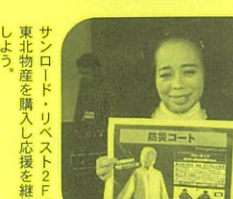 サンロード・リベスト2F
東北物産を購入し応援を継
しよう。
防災コート